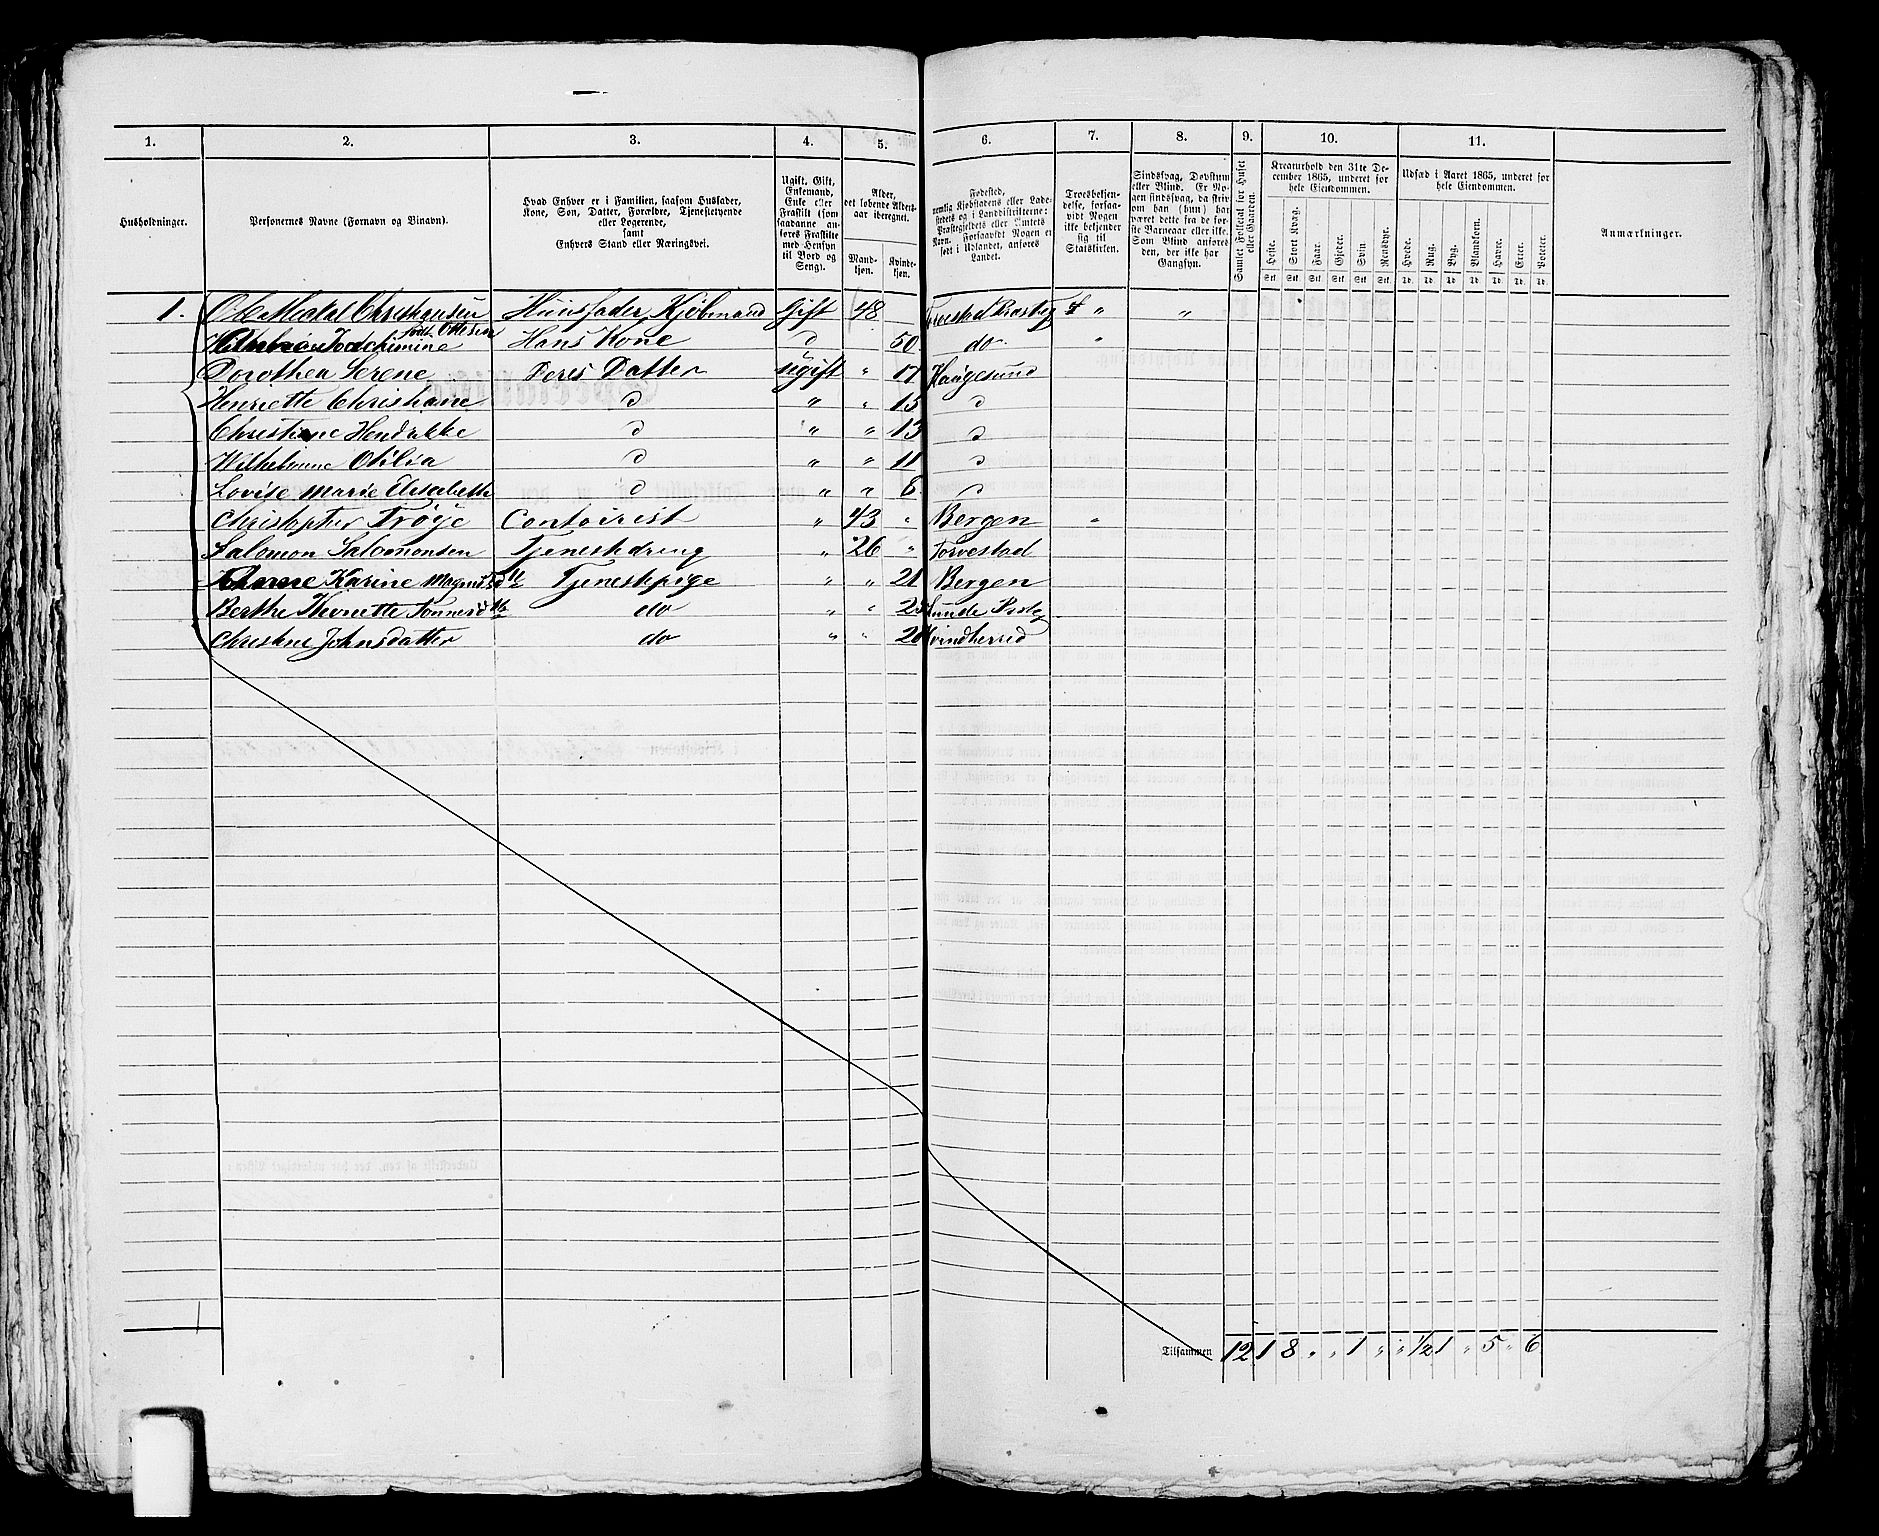 1. 2. 3. 4. 5. 6. 7. 8. 9. 10. 11.
Husholdninger.
Personernes Navne (Fornavn og Binavn).
Hvad Enhver er i Familien, saasom Husfader,
Kone, Søn, Datter, Forældre, Tjenestetyende
eller Logerende,
samt
Enhvers Stand eller Næringsvei.
Ugift, Gift,
Enkemand,
Enke eller
Fraskilt (som
saadanne an-
føres Fraskilte
med Hensyn
til Bord og
Seng).
Alder,
det løbende Alders-
aar iberegnet.
Mand-
kjøn.
Kvinde-
kjøn.
Fødested,
nemlig Kjøbstadens eller Lade-
stedets og i Landdistrikterne:
Præstegjeldets eller Amtets
Navn. Forsaavidt Nogen er
født i Udlandet, anføres
Landet.
Troesbekjen-
delse, forsaa-
vidt Nogen
ikke bekjender
sig til
Statskirken.
Sindssvag, Døvstum
eller Blind. Er No-
gen sindssvag, da skriv
om han (hun) har
været dette fra de før-
ste Barneaar eller ikke.
Som Blind anføres
den, der ikke har
Gangsyn.
Samlet Folketal for Huset
eller Gaarden.
Kreaturhold den 31te De-
cember 1865, underet for
hele Eiendommen.
Heste. Stort Kvæg. Faar. Gjeder. Svin Rensdyr.
Stk. Stk. Stk. Stk. Stk. Stk.
Udsæd i Aaret 1865, underet for
hele Eiendommen.
Hvede. Rug. Byg. Blandkorn. Havre. Erter. Poteter.
Td. Td. Td. Td. Td. Td. Td.
Anmærkninger.
1. Christensen Huusfader, Kjøbmand Gift 48 Torvestad " "
født Ottesen
Joachimine Hans Kone d 50 do. "
Dorothea Serene Deres Datter ugift " 17 Haugesund
Henriette Christiane d " " 15 d
Christiane Hendrikke d " " 13 d
Wilhelmine Otilia d " " 11 d
Lovise Marie Elisabeth d " " 8 d
Christopher Trøye Contoirist " 43 " Bergen "
Salomon Salomonsen Tjenestedreng " 26 " Torvestad
Karine Tjenestepige " " 21 Bergen
Berthe do " "
Christine Johnsdatter do " " Kvindherred
Tilsammen 12 1 8 " " 1 " " 1/2 1 " 5 " 6